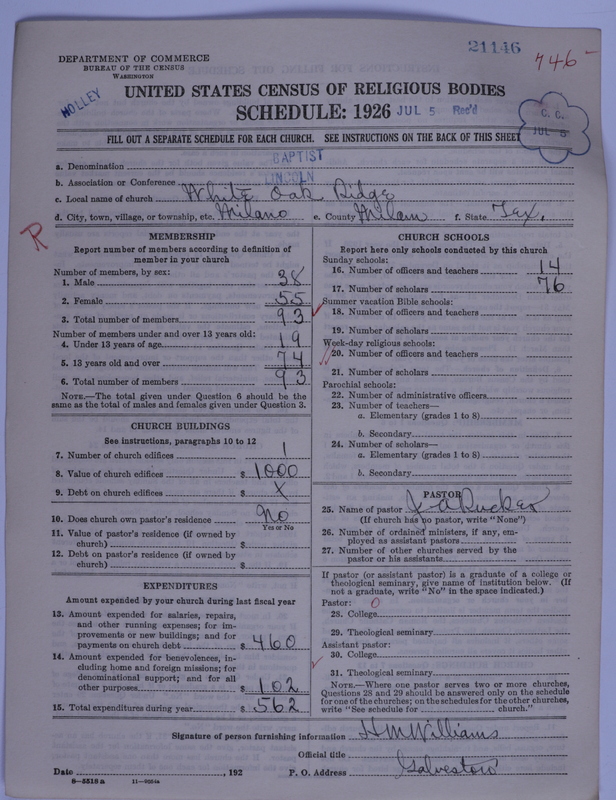 21146
746-
DEPARTMENT OF COMMERCE
BUREAU OF THE CENSUS
WASHINGTON
HOLLEY
UNITED STATES CENSUS OF RELIGIOUS BODIES
SCHEDULE: 1926 JUL 5 Rec'd
C. C.
JUL 5
FILL OUT A SEPARATE SCHEDULE FOR EACH CHURCH. SEE INSTRUCTIONS ON THE BACK OF THIS SHEET
a. Denomination BAPTIST
b. Association or Conference LINCOLN
c. Local name of church White Oak Ridge
d. City, town, village, or township, etc. Milano e. County Milam f. State Tex.
R
MEMBERSHIP
Report number of members according to definition of
member in your church
Number of members, by sex:
1. Male 38
2. Female 55
3. Total number of members 93
Number of members under and over 13 years old:
4. Under 13 years of age 19
5. 13 years old and over 74
6. Total number of members 93
NOTE.—The total given under Question 6 should be the
same as the total of males and females given under Question 3.
CHURCH BUILDINGS
See instructions, paragraphs 10 to 12
7. Number of church edifices 1
8. Value of church edifices $ 1000
9. Debt on church edifices $ X
10. Does church own pastor's residence No
Yes or No
11. Value of pastor's residence (if owned by
church) $
12. Debt on pastor's residence (if owned by
church) $
EXPENDITURES
Amount expended by your church during last fiscal year
13. Amount expended for salaries, repairs,
and other running expenses; for im-
provements or new buildings; and for
payments on church debt $ 460
14. Amount expended for benevolences, in-
cluding home and foreign missions; for
denominational support; and for all
other purposes $ 102
15. Total expenditures during year $ 562
CHURCH SCHOOLS
Report here only schools conducted by this church
Sunday schools:
16. Number of officers and teachers 14
17. Number of scholars 76
Summer vacation Bible schools:
18. Number of officers and teachers
19. Number of scholars
Week-day religious schools:
20. Number of officers and teachers
21. Number of scholars
Parochial schools:
22. Number of administrative officers
23. Number of teachers—
a. Elementary (grades 1 to 8)
b. Secondary
24. Number of scholars—
a. Elementary (grades 1 to 8)
b. Secondary
PASTOR
25. Name of pastor J A Rucker
(If church has no pastor, write "None")
26. Number of ordained ministers, if any, em-
ployed as assistant pastors
27. Number of other churches served by the
pastor or his assistants
If pastor (or assistant pastor) is a graduate of a college or
theological seminary, give name of institution below. (If
not a graduate, write "No" in the space indicated.)
Pastor: 0
28. College
29. Theological seminary
Assistant pastor:
30. College
31. Theological seminary
NOTE.—Where one pastor serves two or more churches,
Questions 28 and 29 should be answered only on the schedule
for one of the churches; on the schedules for the other churches,
write "See schedule for church."
Signature of person furnishing information H M Williams
Official title
Date , 192 P. O. Address Galveston
8-5518 a 11-9034a